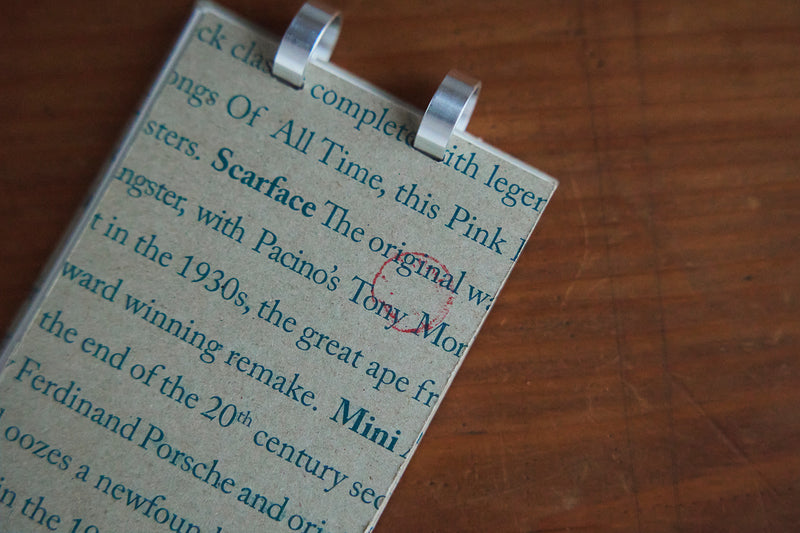 ck clas complete ith leger
ongs Of All Time, this Pink
sters. Scarface The original wa
ngster, with Pacino's Tony Mon
t in the 1930s, the great ape fr
ward winning remake. Mini
the end of the 20th century sec
Ferdinand Porsche and ori
oozes a newfoun
in the 19